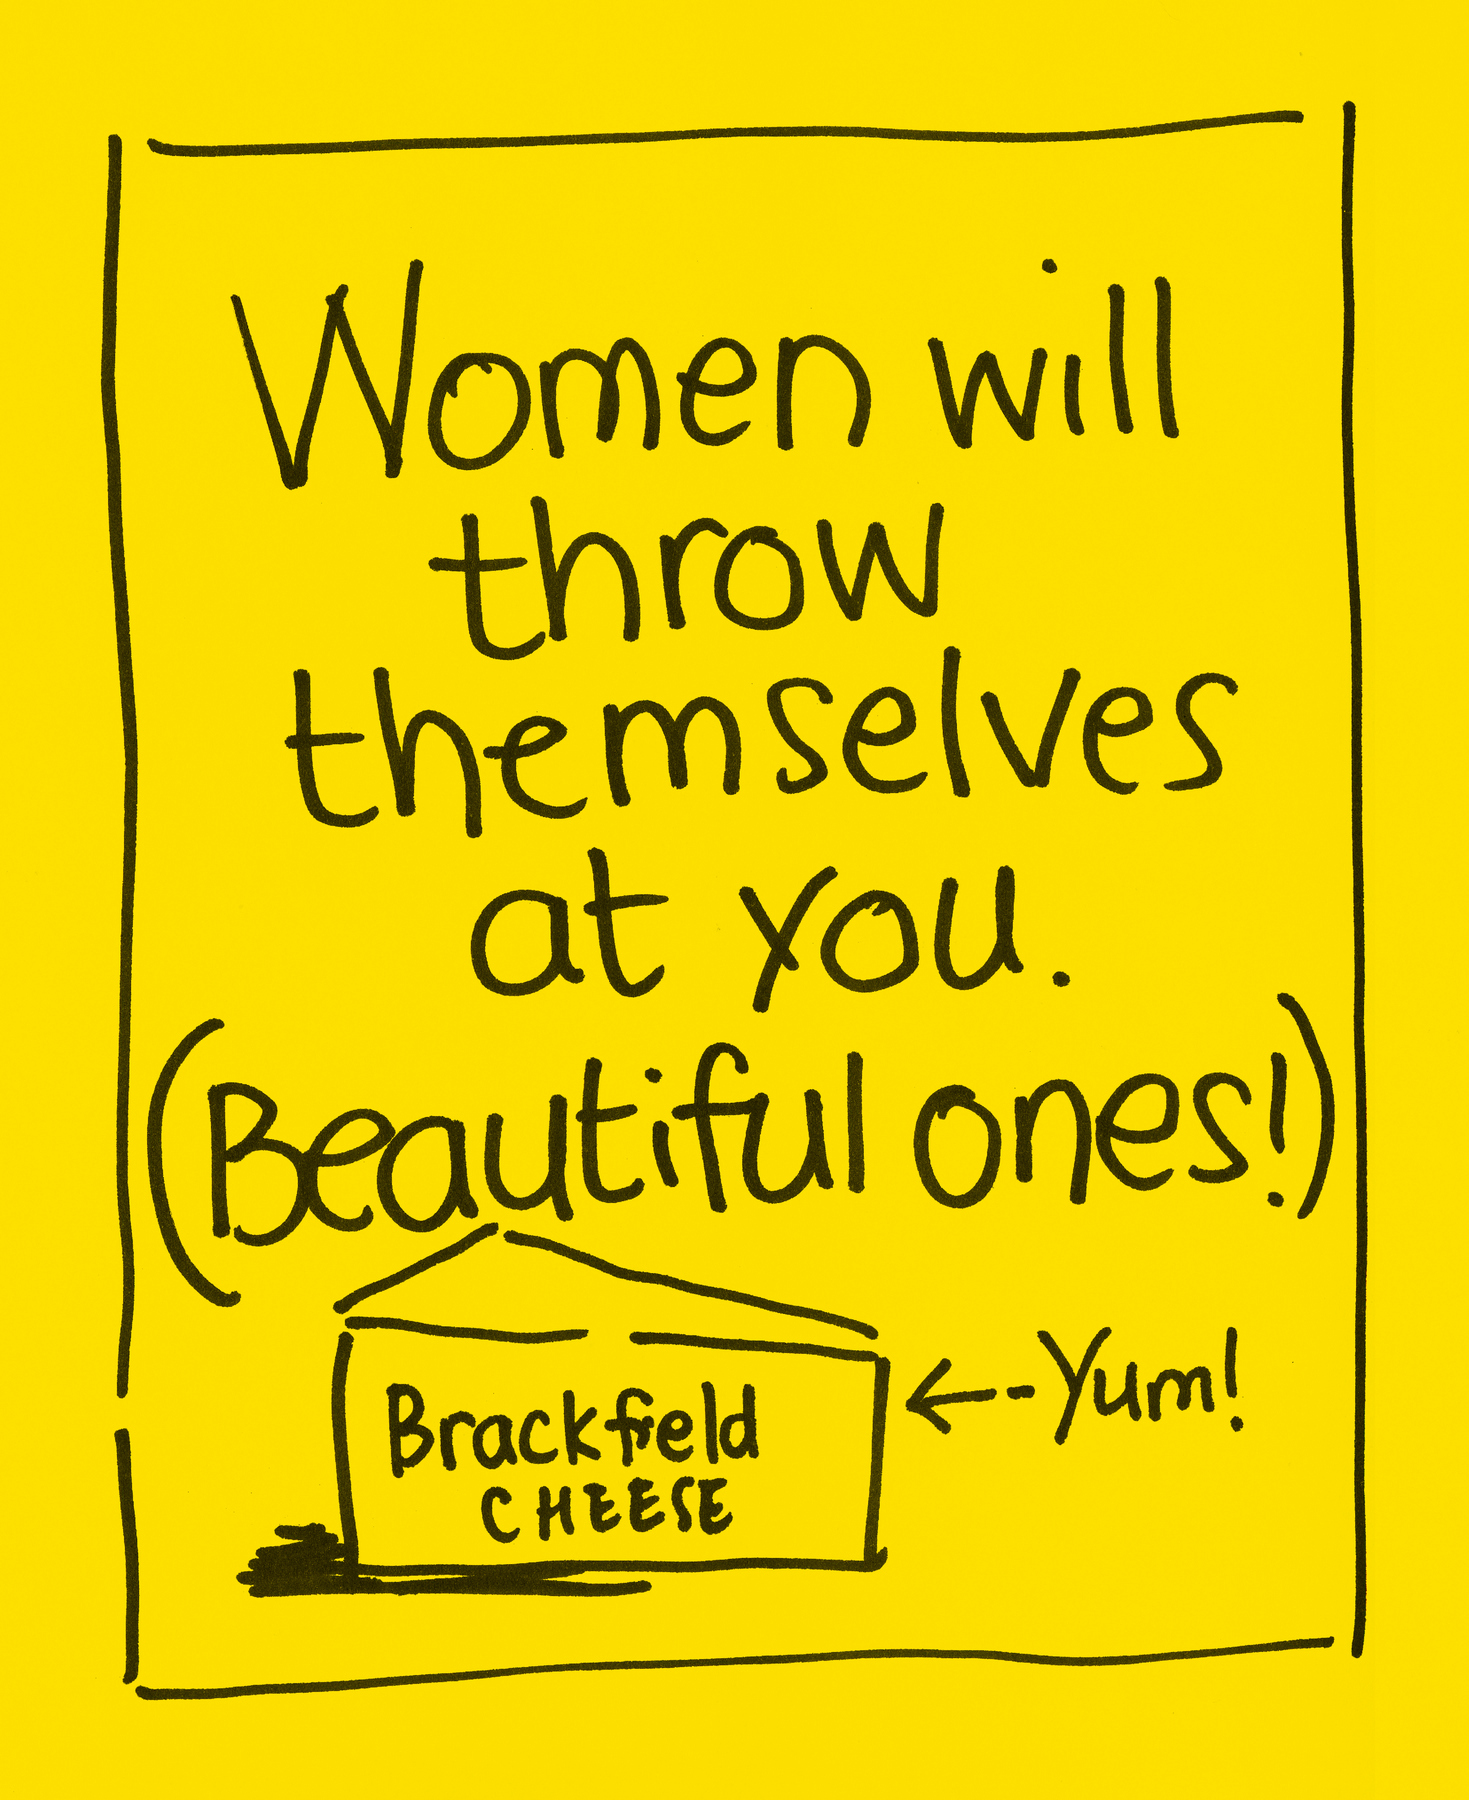 Women will
throw
themselves
at you.
(Beautiful ones!)
Yum!
Brackfield
CHEESE